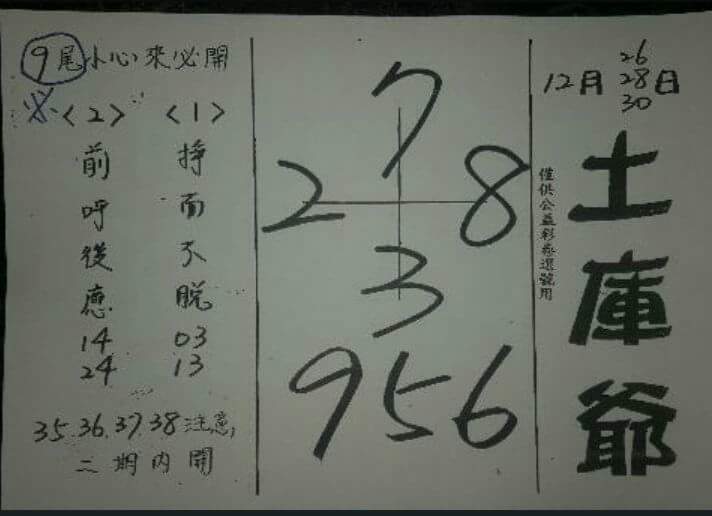 12月26 28 30日
土庫爺
僅供公益彩券選號用
7
2 8
3
956
9尾小心來必開
<1>
掙而不脱
03
13
<2>
前呼後應
14
24
35.36.37.38注意
二期內開